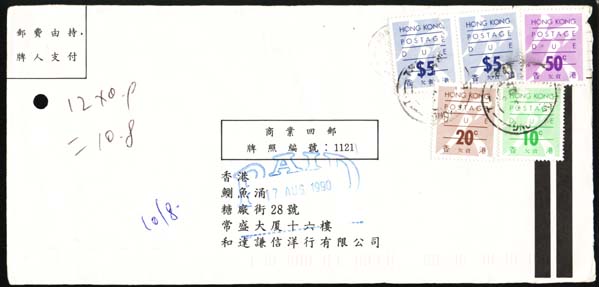 郵費由持
牌人支付
HONG KONG
POSTAGE
DUE
$5
香 欠資 港
HONG KONG
POSTAGE
DUE
$5
香 欠資 港
HONG KONG
POSTAGE
DUE
50c
香 欠資 港
HONG KONG
POSTAGE
DUE
20c
香 欠資 港
HONG KONG
POSTAGE
DUE
10c
香 欠資 港
12 x 0.9
= 10.8
商業回郵
牌照編號:1121
PAID
17 AUG 1990
香港
鰂魚涌
糖廠街28號
常盛大厦十六樓
和達謙信洋行有限公司
10/8.